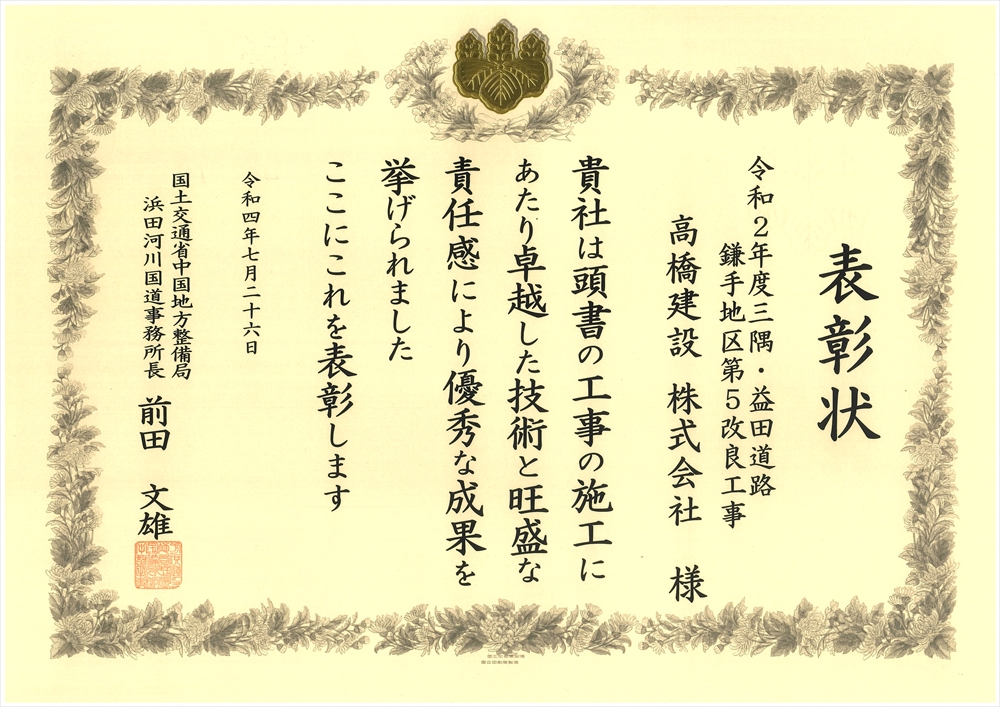 表彰状
令和２年度三隅・益田道路
鎌手地区第５改良工事
高橋建設 株式会社 様
貴社は頭書の工事の施工に
あたり卓越した技術と旺盛な
責任感により優秀な成果を
挙げられました
ここにこれを表彰します
令和四年七月二十六日
国土交通省中国地方整備局
浜田河川国道事務所長 前田 文雄